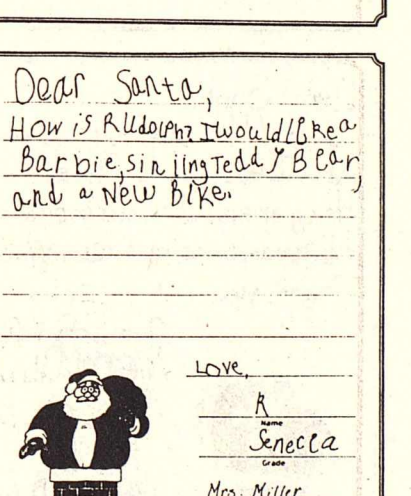 Dear Santa,
How is Rudolph? I would like a
Barbie, sinjing Teddy Bear,
and a New Bike.
Love,
R
Name
Senecca
Grade
Mrs. Miller